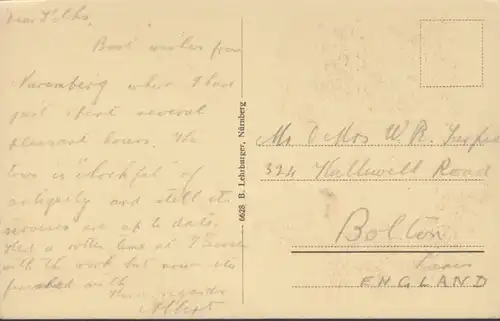 Dear Folks,
Best wishes from
Nuremberg where I have
just spent several
pleasant hours. The
town is "chockful" of
antiquity and still its
services are up to date.
Had a rotten time at
with the work but now its
finished with
Albert
6628 B. Lehrburger, Nürnberg
Mr & Mrs W. R.
324 Halliwell Road
Bolton
Lancs
ENGLAND